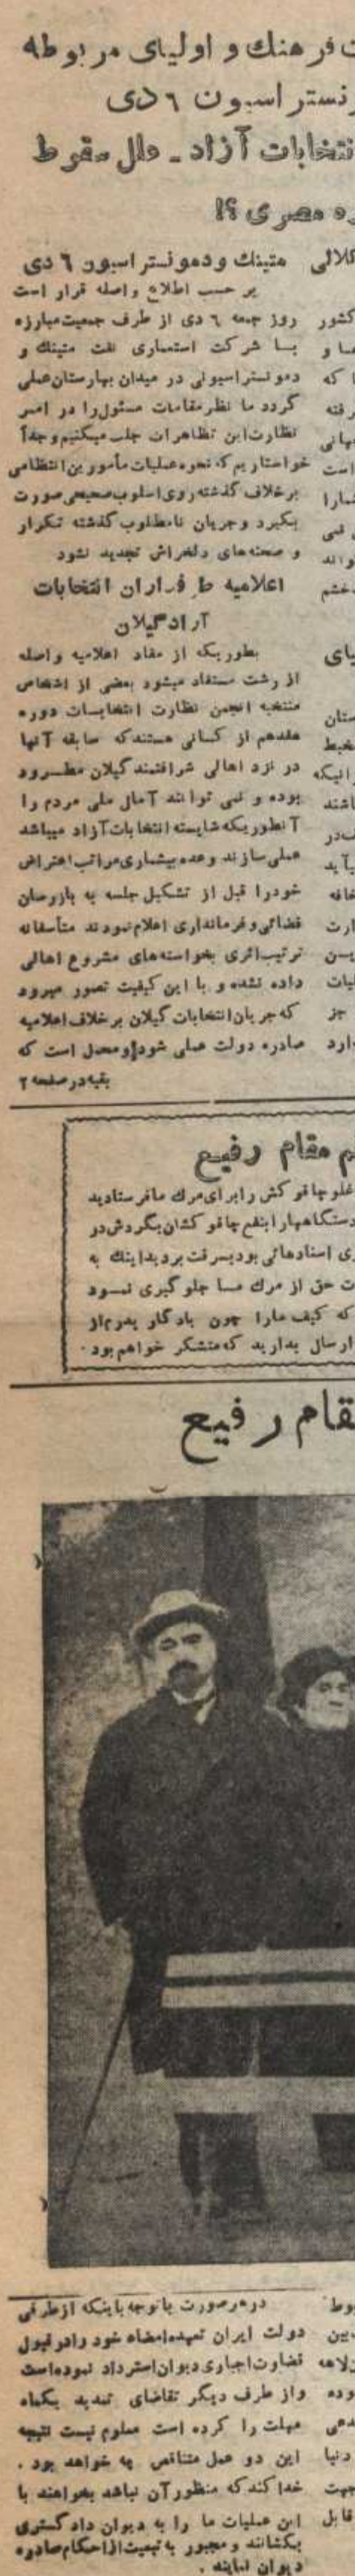 فرهنك و اولیای مربوطه
نستراسیون ٦ دی
انتخابات آزاد ـ ملل سقوط
ره مصری ؟!
متینك ودمونستراسیون ٦ دی
بر حسب اطلاع واصله قرار است
روز جمعه ٦ دی از طرف جمعیت مبارزه
بـا شركت استعماری نفت متینك و
دمونستراسیونی در میدان بهارستان عملی
گردد ما نظر مقامات مسئول را در امـر
نظارت این تظاهرات جلب میكنیم وجداً
خواستاریم كه نحوه عملیات مأمورین انتظامی
برخلاف گذشته روی اسلوب صحیحی صورت
بگیرد وجریان نامطلوب گذشته تكرار
و صحنه های دلخراش تجدید نشود
اعلامیه طرفداران انتخابات
آزاد گیلان
بطوریكه از مفاد اعلامیه واصله
از رشت مستفاد میشود بعضی از اشخاص
منتخبه انجمن نظارت انتخابـات دوره
هفدهم از كسانی هستندكه سابقه آنها
در نزد اهالی شرافتمند گیلان مطـرود
بوده و نمی توانند آمال ملی مردم را
آنطوریكه شایسته انتخابات آزاد میباشد
عملی سازند وعده بیشماری مراتب اعتراض
خودرا قبل از تشكیل جلسه به بازرسان
قضائی و فرمانداری اعلام نمودند متأسفانه
ترتیب اثری بخواسته های مشروع اهالی
داده نشده و با این كیفیت تصور میرود
كه جریان انتخابات گیلان برخلاف اعلامیه
صادره دولت عملی شود و محمل است كه
بقیه در صفحه ٢
م مقام رفیع
غلو چاقو كش را برای مرك ما فرستادید
دستگاهها را بنفع چاقو كشان بگردش در
ری اسنادهائی بود بسرقت بردید اینك به
ت حق از مرك مـا جلوگیری نمـود
كه كیف ما را چون یادگار پدرم از
ارسال بدارید كه متشكر خواهم بود .
قام رفیع
در هر صورت با توجه باینكه از طرفی
دولت ایران تعهد و امضاء خود را در قبول
قضاوت اجباری دیوان استرداد نموده است
واز طرف دیگر تقاضای تمدید یكماه
مهلت را كرده است معلوم نیست نتیجه
این دو عمل متناقض چه خواهد بود .
خدا كند كه منظور آن نباشد بخواهند با
این عملیات ما را به دیوان دادگستری
بكشانند و مجبور به تبعیت از احكام صادره
دیوان نمایند .